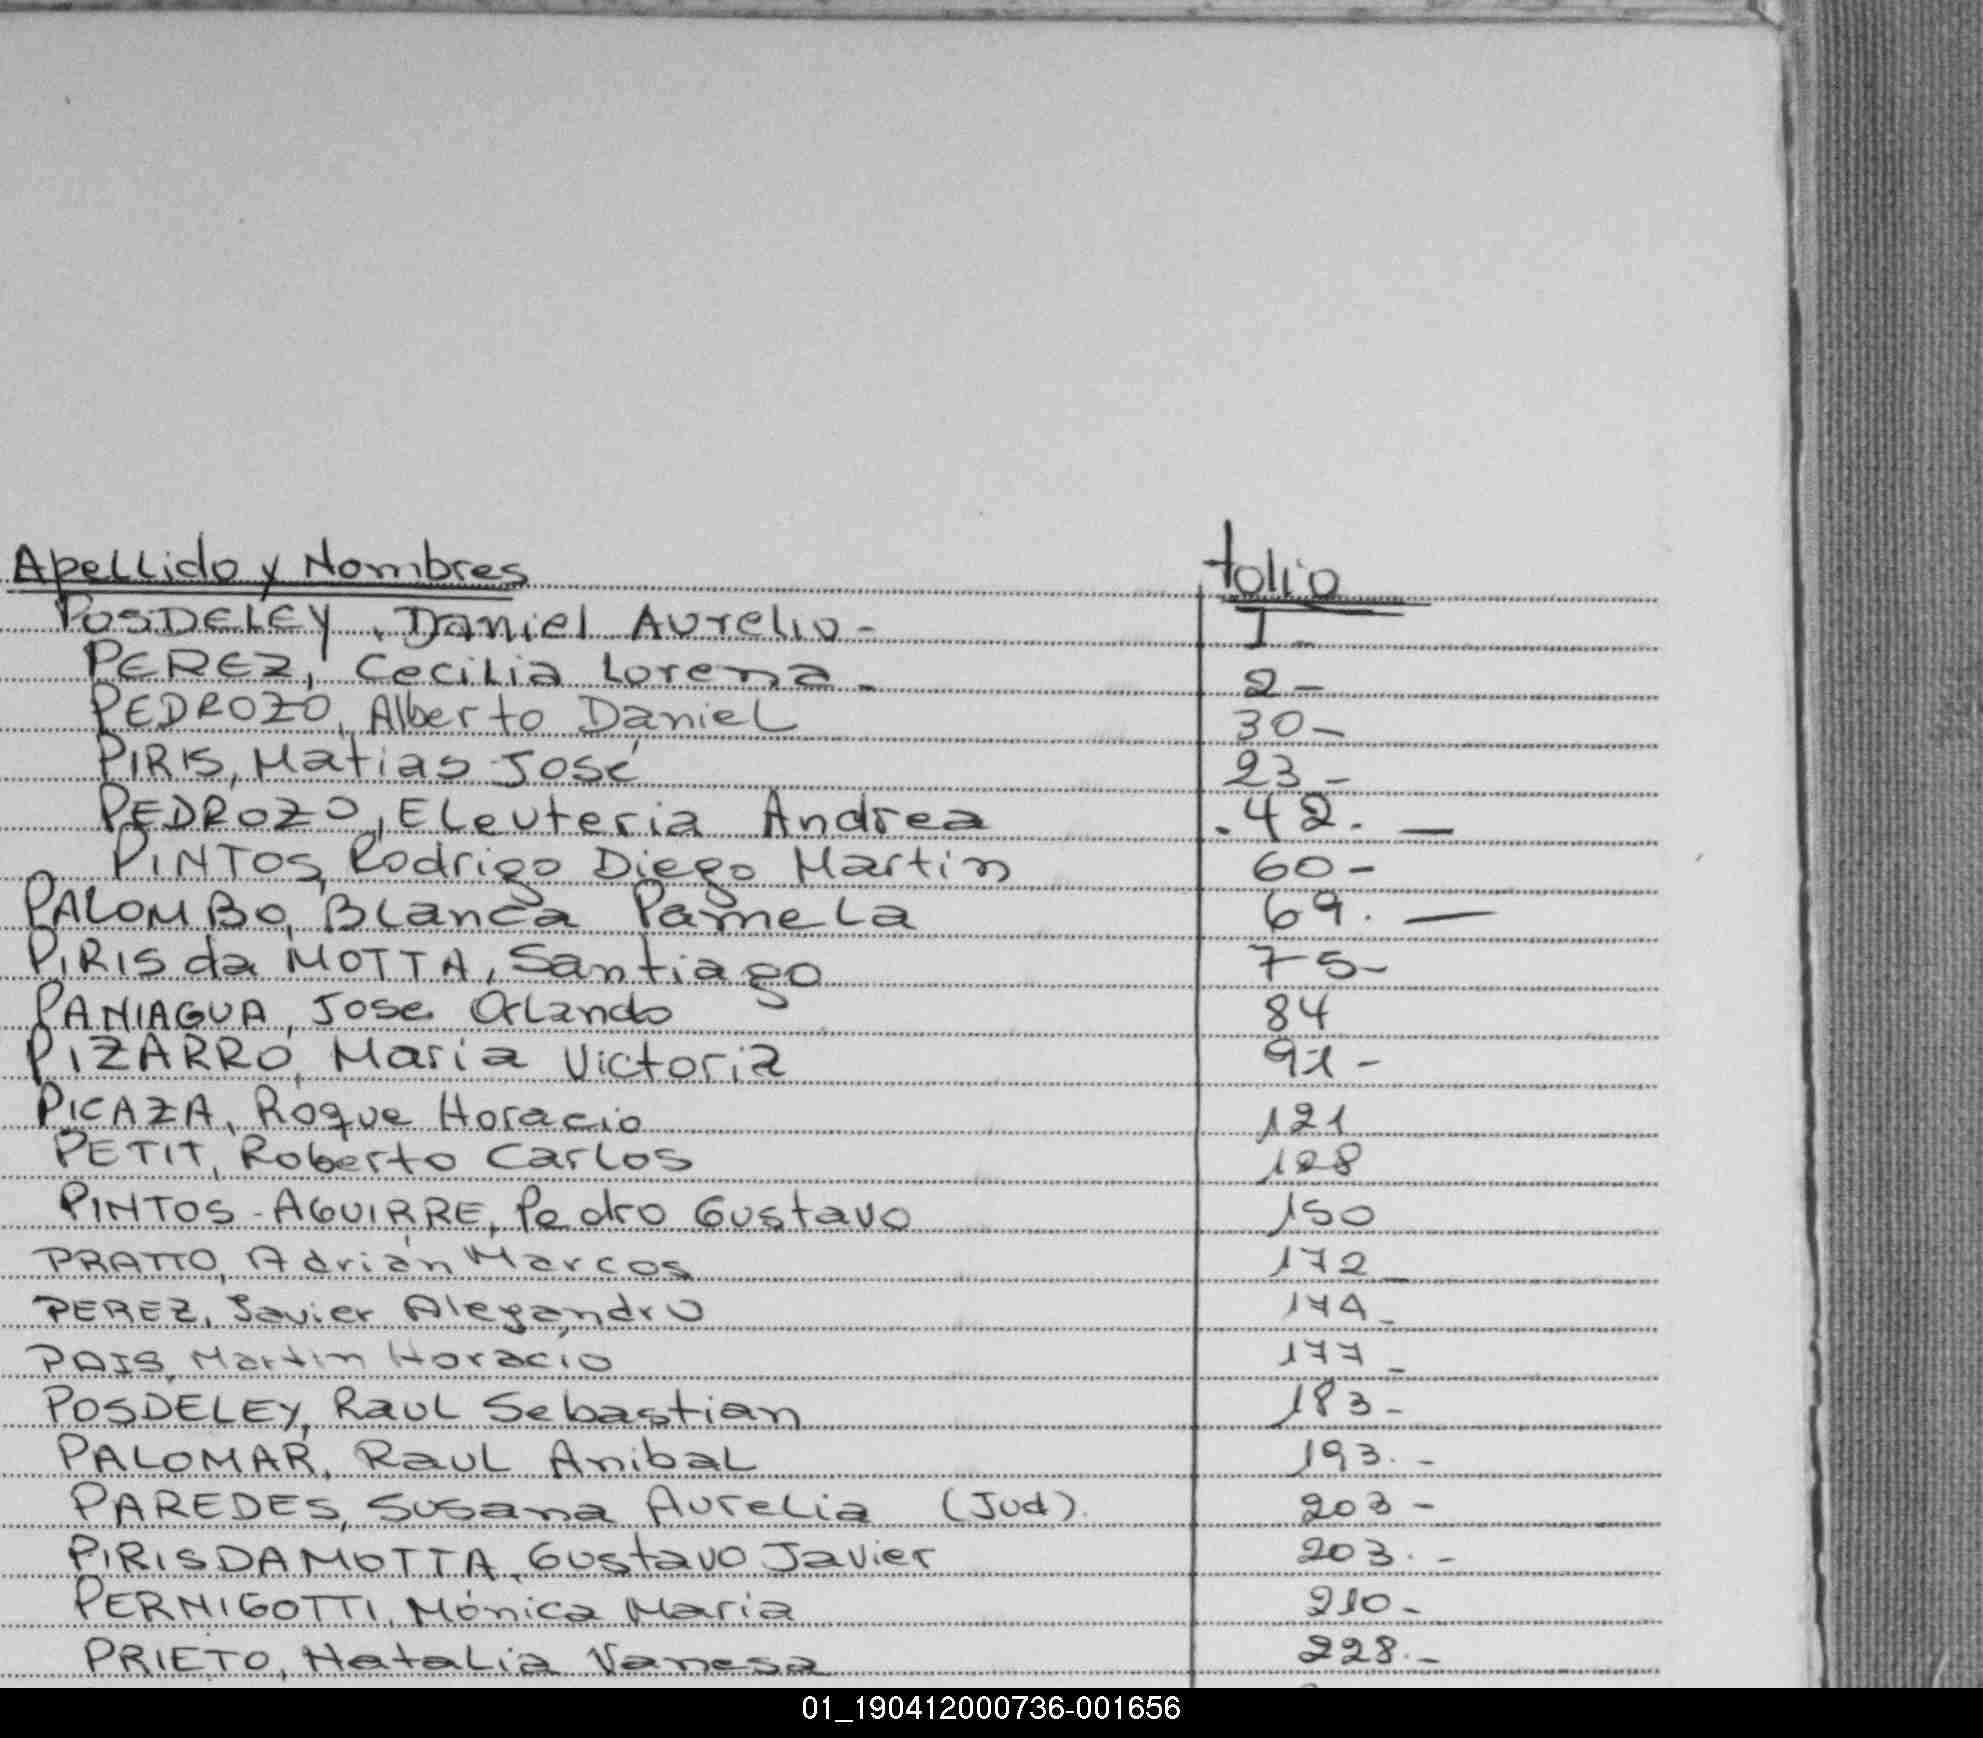 Apellido y Nombres folio
POSDELEY, Daniel Aurelio - 1 -
PEREZ, Cecilia Lorena - 2 -
PEDROZO, Alberto Daniel 30 -
PIRIS, Matias José 23 -
PEDROZO, Eleuteria Andrea . 42. —
PINTOS, Rodrigo Diego Martin 60 -
PALOMBO, Blanca Pamela 69. —
PIRIS da MOTTA, Santiago 75 -
PANIAGUA, Jose Orlando 84
PIZARRO, Maria Victoria 91 -
PICAZA, Roque Horacio 121
PETIT, Roberto Carlos 128
PINTOS - AGUIRRE, Pedro Gustavo 150
PRATTO, Adrián Marcos 172 -
PEREZ, Javier Alejandro 174 -
PAIS, Martin Horacio 177 -
POSDELEY, Raul Sebastian 183 -
PALOMAR, Raul Anibal 193. -
PAREDES, Susana Aurelia (Jud). 203 -
PIRIS DA MOTTA, Gustavo Javier 203. -
PERNIGOTTI, Mónica Maria 210 -
PRIETO, Natalia Vanesa 228. -
01_190412000736-001656